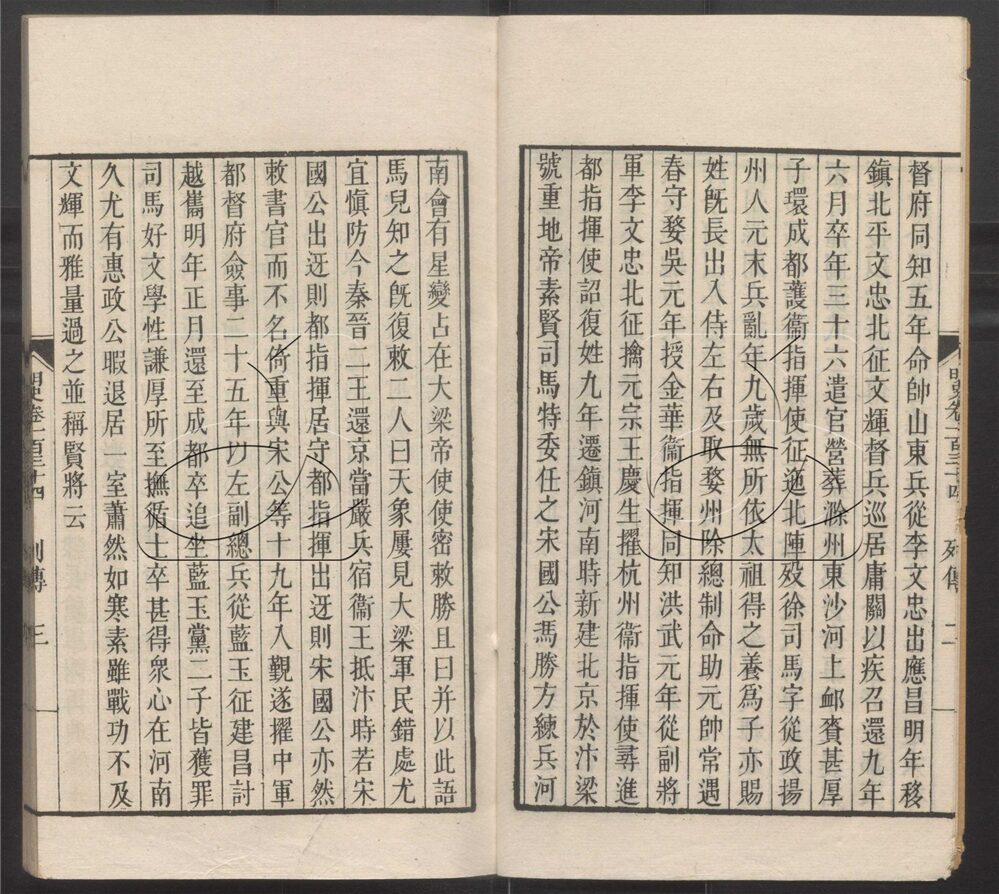 督府同知五年命帥山東兵從李文忠出應昌明年移
鎮北平文忠北征文輝督兵巡居庸關以疾召還九年
六月卒年三十六遣官營葬滁州東沙河上䘏賚甚厚
子環成都護衞指揮使征迤北陣歿徐司馬字從政揚
州人元末兵亂年九歲無所依太祖得之養爲子亦賜
姓旣長出入侍左右及取婺州除總制命助元帥常遇
春守婺吳元年授金華衞指揮同知洪武元年從副將
軍李文忠北征擒元宗王慶生擢杭州衞指揮使尋進
都指揮使詔復姓九年遷鎮河南時新建北京於汴梁
號重地帝素賢司馬特委任之宋國公馮勝方練兵河
明史卷一百三十四
列傳
二
南會有星變占在大梁帝使使密敕勝且曰并以此語
馬兒知之旣復敕二人曰天象屢見大梁軍民錯處尤
宜愼防今秦晉二王還京當嚴兵宿衞王抵汴時若宋
國公出迓則都指揮居守都指揮出迓則宋國公亦然
敕書官而不名倚重與宋公等十九年入覲遂擢中軍
都督府僉事二十五年以左副總兵從藍玉征建昌討
越巂明年正月還至成都卒追坐藍玉黨二子皆獲罪
司馬好文學性謙厚所至撫循士卒甚得衆心在河南
久尤有惠政公暇退居一室蕭然如寒素雖戰功不及
文輝而雅量過之並稱賢將云
明史卷一百三十四
列傳
三